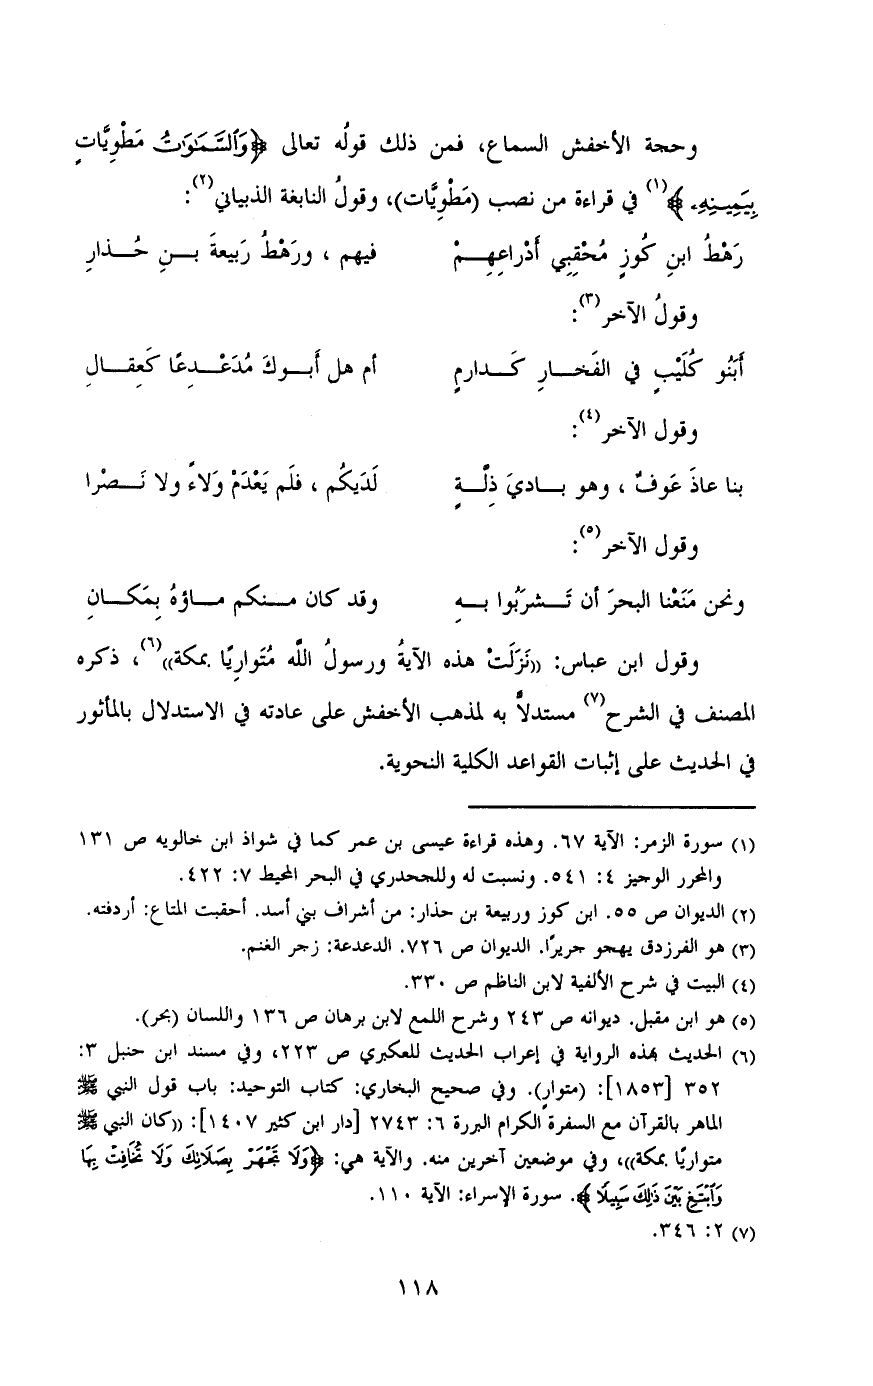 وحجة الأخفش السماع، فمن ذلك قولُه تعالى ﴿وَٱلسَّمَٰوَٰتُ مَطْوِيَّاتٍ
بِيَمِينِهِۦ﴾(١) في قراءة من نصب (مَطْوِيَّات)، وقولُ النابغة الذبياني(٢):
رَهْطُ ابنِ كُوزٍ مُحْقِبِي أَدْراعِهِـــمْ فيهم ، ورَهْطُ رَبيعةَ بــنِ حُــذارِ
وقولُ الآخر(٣):
أَبَنُو كُلَيْبٍ في الفَخــارِ كَــدارمٍ أم هل أَبــوكَ مُدَعْــدِعًا كَعِقــالِ
وقول الآخر(٤):
بنا عاذَ عَوفٌ ، وهو بــاديَ ذِلَّــةٍ لَدَيكُم ، فلَم يَعْدَمْ وَلاءً ولا نَــصْرا
وقول الآخر(٥):
ونحن مَنَعْنا البحرَ أن تَــشرَبُوا بــهِ وقد كان مــنكم مــاؤهُ بِمَكــانِ
وقول ابن عباس: ((نَزَلَتْ هذه الآيةُ ورسولُ اللَّه مُتَوارِيًا بمكة))(٦)، ذكره
المصنف في الشرح(٧) مستدلاًّ به لمذهب الأخفش على عادته في الاستدلال بالمأثور
في الحديث على إثبات القواعد الكلية النحوية.
(١) سورة الزمر: الآية ٦٧. وهذه قراءة عيسى بن عمر كما في شواذ ابن خالويه ص ١٣١
والمحرر الوجيز ٤: ٥٤١. ونسبت له وللجحدري في البحر المحيط ٧: ٤٢٢.
(٢) الديوان ص ٥٥. ابن كوز وربيعة بن حذار: من أشراف بني أسد. أحقبت المتاع: أردفته.
(٣) هو الفرزدق يهجو جريرًا. الديوان ص ٧٢٦. الدعدعة: زجر الغنم.
(٤) البيت في شرح الألفية لابن الناظم ص ٣٣٠.
(٥) هو ابن مقبل. ديوانه ص ٢٤٣ وشرح اللمع لابن برهان ص ١٣٦ واللسان (بحر).
(٦) الحديث بهذه الرواية في إعراب الحديث للعكبري ص ٢٢٣، وفي مسند ابن حنبل ٣:
٣٥٢ [١٨٥٣]: (متوارٍ). وفي صحيح البخاري: كتاب التوحيد: باب قول النبي ﷺ
الماهر بالقرآن مع السفرة الكرام البررة ٦: ٢٧٤٣ [دار ابن كثير ١٤٠٧]: ((كان النبي ﷺ
متواريًا بمكة))، وفي موضعين آخرين منه. والآية هي: ﴿وَلَا تَجْهَرْ بِصَلَاتِكَ وَلَا تُخَافِتْ بِهَا
وَٱبْتَغِ بَيْنَ ذَٰلِكَ سَبِيلًا﴾. سورة الإسراء: الآية ١١٠.
(٧) ٢: ٣٤٦.
١١٨